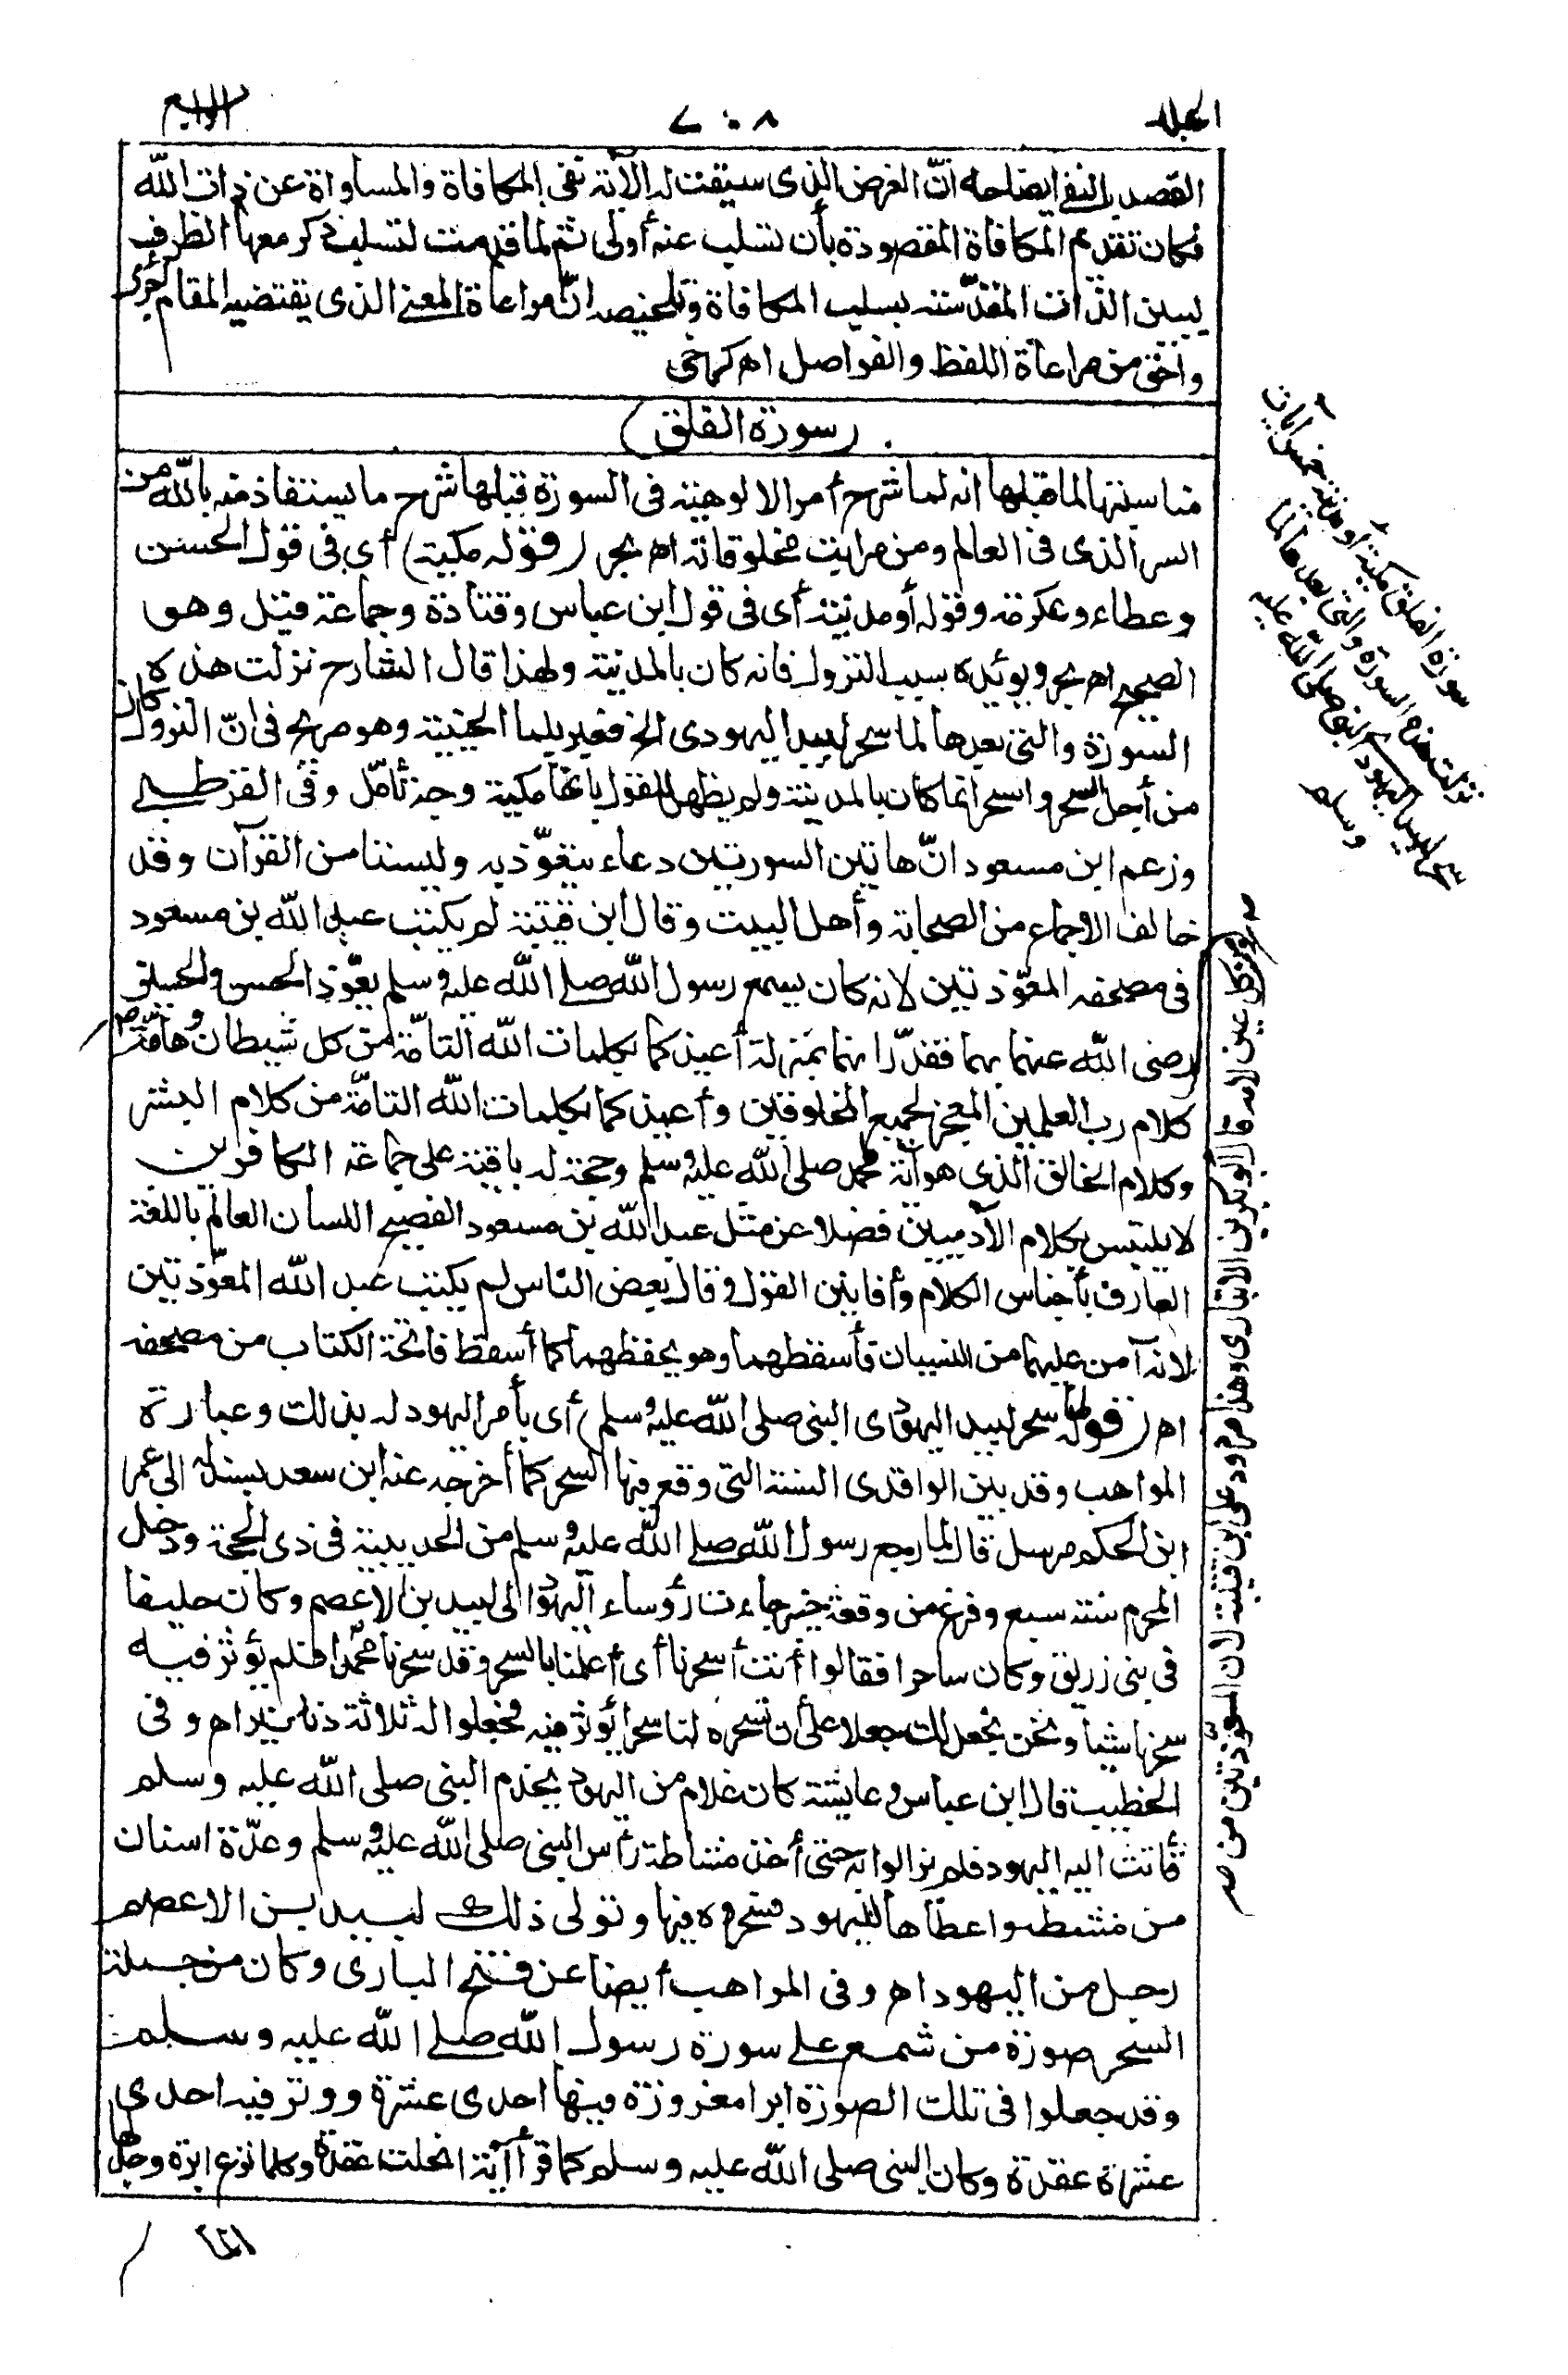 الجلد
٧٠٨
الرابع
القصد بالنفي ايضاحه انّ الغرض الذى سيقت له الآية نفى المكافاة والمساواة عن ذات الله
فكان تقديم المكافاة المقصودة بأن تسلب عنه أولى ثم لما قدمت لتسلب ذكر معها الظرف
ليبين الذات المقدّسة بسلب المكافاة وتلخيصه انّ مراعاة المعنى الذى يقتضيه المقام أحرى
واحق من مراعاة اللفظ والفواصل اه كرخى
(سورة الفلق)
مناسبتها لما قبلها انه لما شرح أمر الالوهية فى السورة قبلها شرح ما يستعاذ منه بالله من
السر الذى فى العالم ومن مراتب مخلوقاته اه بحر (قوله مكية) أى فى قول الحسن
وعطاء وعكرمة وقوله أو مدنية أى فى قول ابن عباس وقتادة وجماعة قيل وهو
الصحيح اه بحر ويؤيده سبب النزول فانه كان بالمدينة ولهذا قال الشارح نزلت هذه
السورة والتى بعدها لما سحر لبيد اليهودى الخ فعبر بلما الحينية وهو صريح فى انّ النزول كان
من أجل السحر والسحر انما كان بالمدينة ولم يظهر للقول بانها مكية وجه تأمّل وفى القرطبى
وزعم ابن مسعود انّ هاتين السورتين دعاء يتعوّذ به وليستا من القرآن وقد
خالف الاجماع من الصحابة وأهل البيت وقال ابن قتيبة لم يكتب عبد الله بن مسعود
فى مصحفه المعوّذتين لانه كان يسمع رسول الله صلى الله عليه وسلم يعوّذ الحسن والحسين
رضى الله عنهما بهما فقدّر انهما بمنزلة أعيذكما بكلمات الله التامّة من كل شيطان وهامّة
كلام رب العلمين المعجز لجميع المخلوقين وأعيذكما بكلمات الله التامّة من كلام البشر
وكلام الخالق الذى هو آية محمد صلى الله عليه وسلم وحجة له باقية على جماعة الكافرين
لا يلتبس بكلام الآدميين فضلا عن مثل عبد الله بن مسعود الفصيح اللسان العالم باللغة
العارف بأجناس الكلام وأفانين القول وقال بعض الناس لم يكتب عبد الله المعوّذتين
لانه آمن عليهما من النسيان فأسقطهما وهو يحفظهما كما أسقط فاتحة الكتاب من مصحفه
اه (قوله لما سحر لبيد اليهودى النبى صلى الله عليه وسلم) أى بأمر اليهود له بذلك وعبارة
المواهب وقد بين الواقدى السنة التى وقع فيها السحر كما أخرجه عنه ابن سعد بسنده الى عمر
ابن الحكم مرسل قال لما رجع رسول الله صلى الله عليه وسلم من الحديبية فى ذى الحجة ودخل
المحرم سنة سبع وفرغ من وقعة خيبر جاءت رؤساء اليهود الى لبيد بن الاعصم وكان حليفا
فى بنى زريق وكان ساحرا فقالوا أنت أسحرنا أى أعلمنا بالسحر وقد سحرنا محمدا فلم يؤثر فيه
سحرنا شيأ ونحن نجعل لك جعلا على أن تسحره لنا سحرا يؤثر فيه فجعلوا له ثلاثة دنانير اه وفى
الخطيب قال ابن عباس وعايشة كان غلام من اليهود يخدم النبى صلى الله عليه وسلم
فأتت اليه اليهود فلم يزالوا به حتى أخذ مشاطة رأس النبى صلى الله عليه وسلم وعدّة اسنان
من مشطه واعطاها لليهود فسحروه فيها وتولى ذلك لبيد بن الاعصم
رجل من اليهود اه وفى المواهب أيضا عن فتح البارى وكان من جملة
السحر صورة من شمع على سورة رسول الله صلى الله عليه وسلم
وقد جعلوا فى تلك الصورة ابرا مغروزة فيها احدى عشرة ووتر فيه احدى
عشرة عقدة وكان النبى صلى الله عليه وسلم كما قرأ آية انحلت عقدة وكلما نزع ابرة وجد لها
سورة الفلق مكية أو مدنية خمس آيات
نزلت هذه السورة والتى بعدها لما
سحر لبيد اليهودى النبى صلى الله عليه
وسلم
ومن كل عين لامه قال ابو بكر بن الانبارى وهذا مردود على ابن قتيبة لان المعوّذتين من